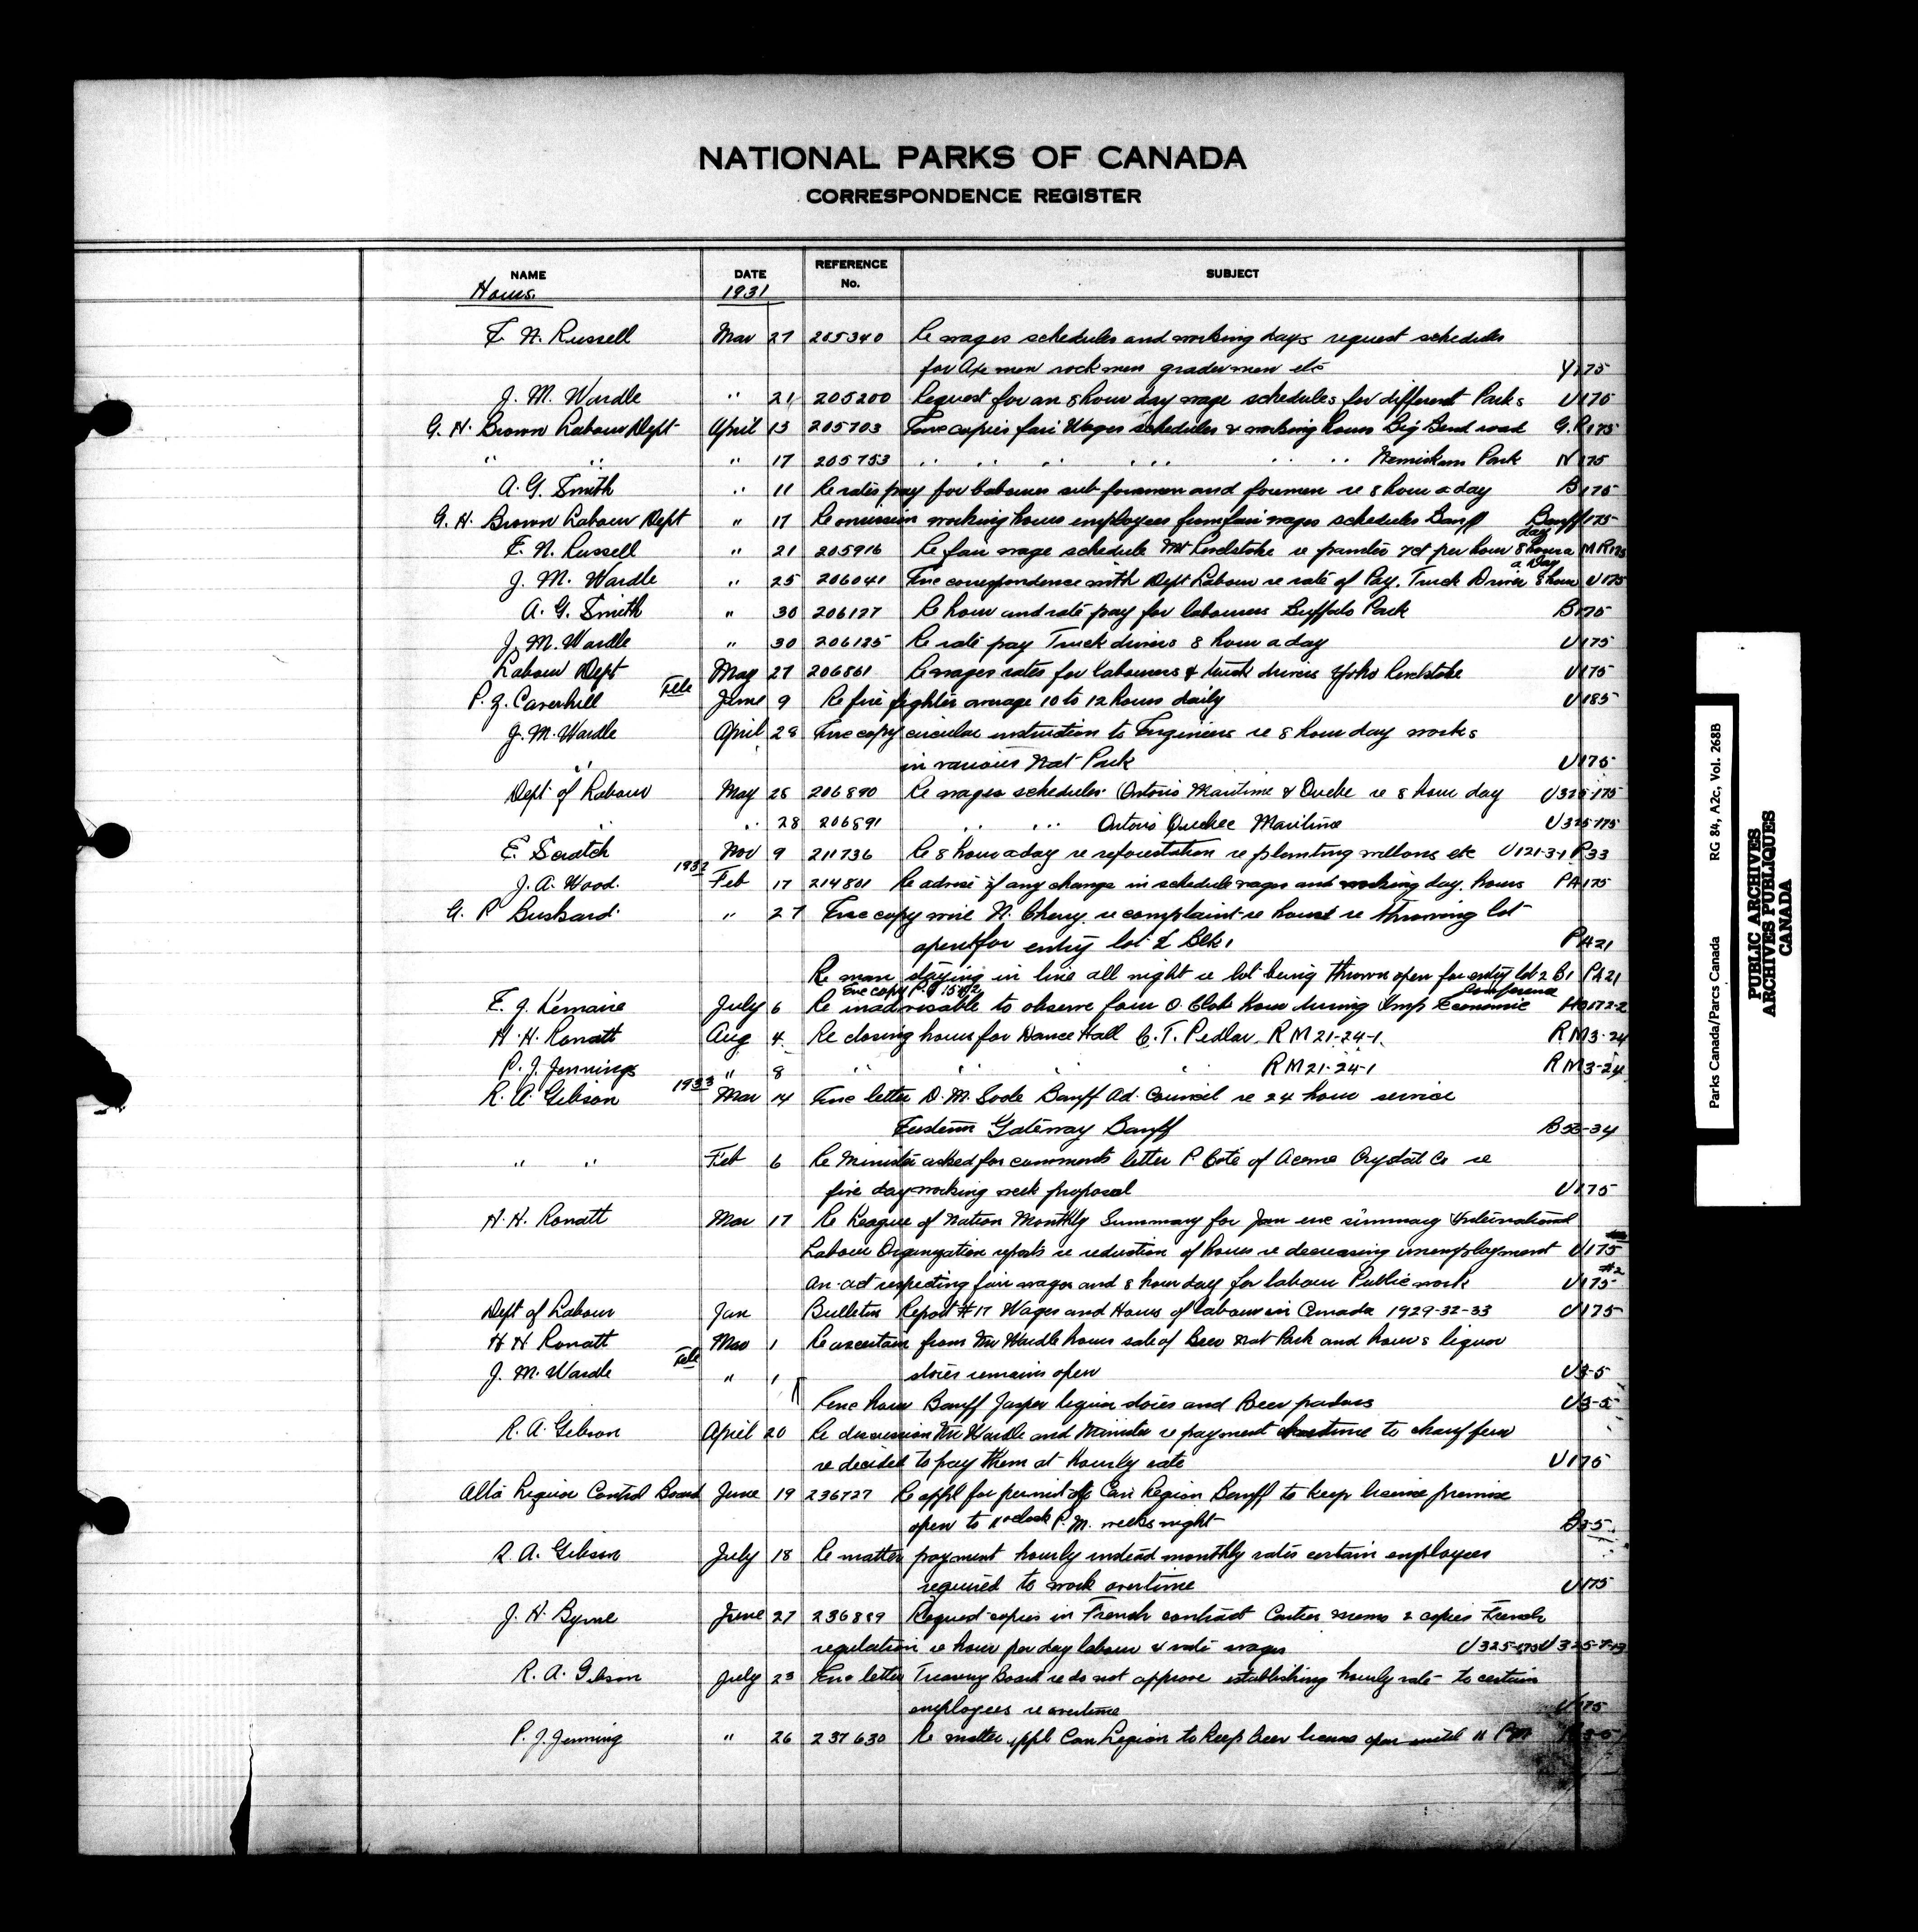 NATIONAL PARKS OF CANADA
CORRESPONDENCE REGISTER
NAME DATE REFERENCE No. SUBJECT
Hours. 1931
F. N. Russell Mar 27 205340 Re wages schedules and working days request schedules
for Axe men rock men grader men etc Y175
J. M. Wardle " 21 205200 Request for an 8 hour day wage schedules for different Parks U175
G. H. Brown Labour Dept April 13 205703 Enc copies fair Wages schedules & working hours Big Bend road G.R175
" " " 17 205753 " " " " " " Nemiskam Park N175
A. G. Smith " 11 Re rates pay for labourers sub foreman and foremen re 8 hour a day B175
G. H. Brown Labour Dept " 17 Re omission working hours employees from fair wages schedules Banff Banff175
F. N. Russell " 21 205916 Re fair wage schedule Mt Revelstoke re painters 70¢ per hour 8 hours a day MR175
J. M. Wardle " 25 206041 Enc correspondence with Dept Labour re rate of Pay. Truck Driver 8 hour a Day U175
A. G. Smith " 30 206127 Re hour and rate pay for labourers Buffalo Park B175
J. M. Wardle " 30 206125 Re rate pay Truck drivers 8 hour a day U175
Labour Dept May 27 206861 Re wages rates for labourers & truck drivers Yoho Revelstoke U175
P. Z. Caverhill Tele June 9 Re fire fighters average 10 to 12 hours daily U185
J. M. Wardle April 28 Enc copy circular instruction to Engineers re 8 hour day works
" in various Nat Park U175
Dept of Labour May 25 206890 Re wages schedules Ontario Maritime & Quebe re 8 hour day U325-175
" " 28 206891 " " " Ontario Quebec Maritime U325-175
E. Scratch Nov 9 211736 Re 8 hour a day re reforestation re planting willows etc U121-3-1 P33
1932
J. A. Wood. Feb 17 214801 Re advise if any change in schedule wages and working day. hours PA175
G. P Buskard " 27 Enc copy wire N. Cherry re complaint re hours re throwing lot
open for entry lot 2 Blk 1 PA21
Re man staying in line all night re lot being thrown open for entry lot 2 B1 PA21
Enc copy P.C 15 Conference
E. J. Lemaire July 6 Re inadvisable to observe four O Clock hour during Imp Economic HO172-2
H. H. Rowatt Aug 4 Re closing hours for Dance Hall C. T. Pedlar RM21-24-1 RM3-24
P. J. Jennings " 8 " " " " RM21-24-1 RM3-24
1933
R. A. Gibson Mar 14 Enc letter D. M. Soole Banff Ad. Council re 24 hour service
Eastern Gateway Banff B56-34
" " Feb 6 Re Minister asked for comments letter P. Coté of Acme Crystal Co re
five day working week proposal U175
H. H. Rowatt Mar 17 Re League of Nation Monthly Summary for Jan enc summary International
Labour Organization reports re reduction of hours re decreasing unemployment U175
An act respecting fair wages and 8 hour day for labour Public work U175 #2
Dept of Labour Jan Bulletin Report #17 Wages and Hours of labour in Canada 1929-32-33 U175
H H Rowatt Mar 1 Re ascertain from Mr Wardle hours sale of Beer Nat Park and hours liquor
J. M. Wardle Tele " 1 stores remains open U3-5
Enc hour Banff Jasper liquor stores and Beer parlours U3-5
R. A. Gibson April 20 Re discussion Mr Wardle and Minister re payment overtime to chauffeur
re decided to pay them at hourly rate U175
Alta Liquor Control Board June 19 236727 Re appl for permit of Can Legion Banff to keep license premise
open to 11 oclock P. M. weeks night B3-5
R. A. Gibson July 18 Re matter payment hourly instead monthly rates certain employees
required to work overtime U175
J. H. Byrne June 27 236889 Request copies in French contract Cartier memo 2 copies French
regulation re hour per day labour & rate wages U325-175 U325-7-13
R. A. Gibson July 23 Enc letter Treasury Board re do not approve establishing hourly rate to certain
employees re overtime U175
P. J. Jenning " 26 237630 Re matter appl Can Legion to keep beer license open until 11 PM B3-5
Parks Canada/Parcs Canada RG 84, A2c, Vol. 268B
PUBLIC ARCHIVES
ARCHIVES PUBLIQUES
CANADA